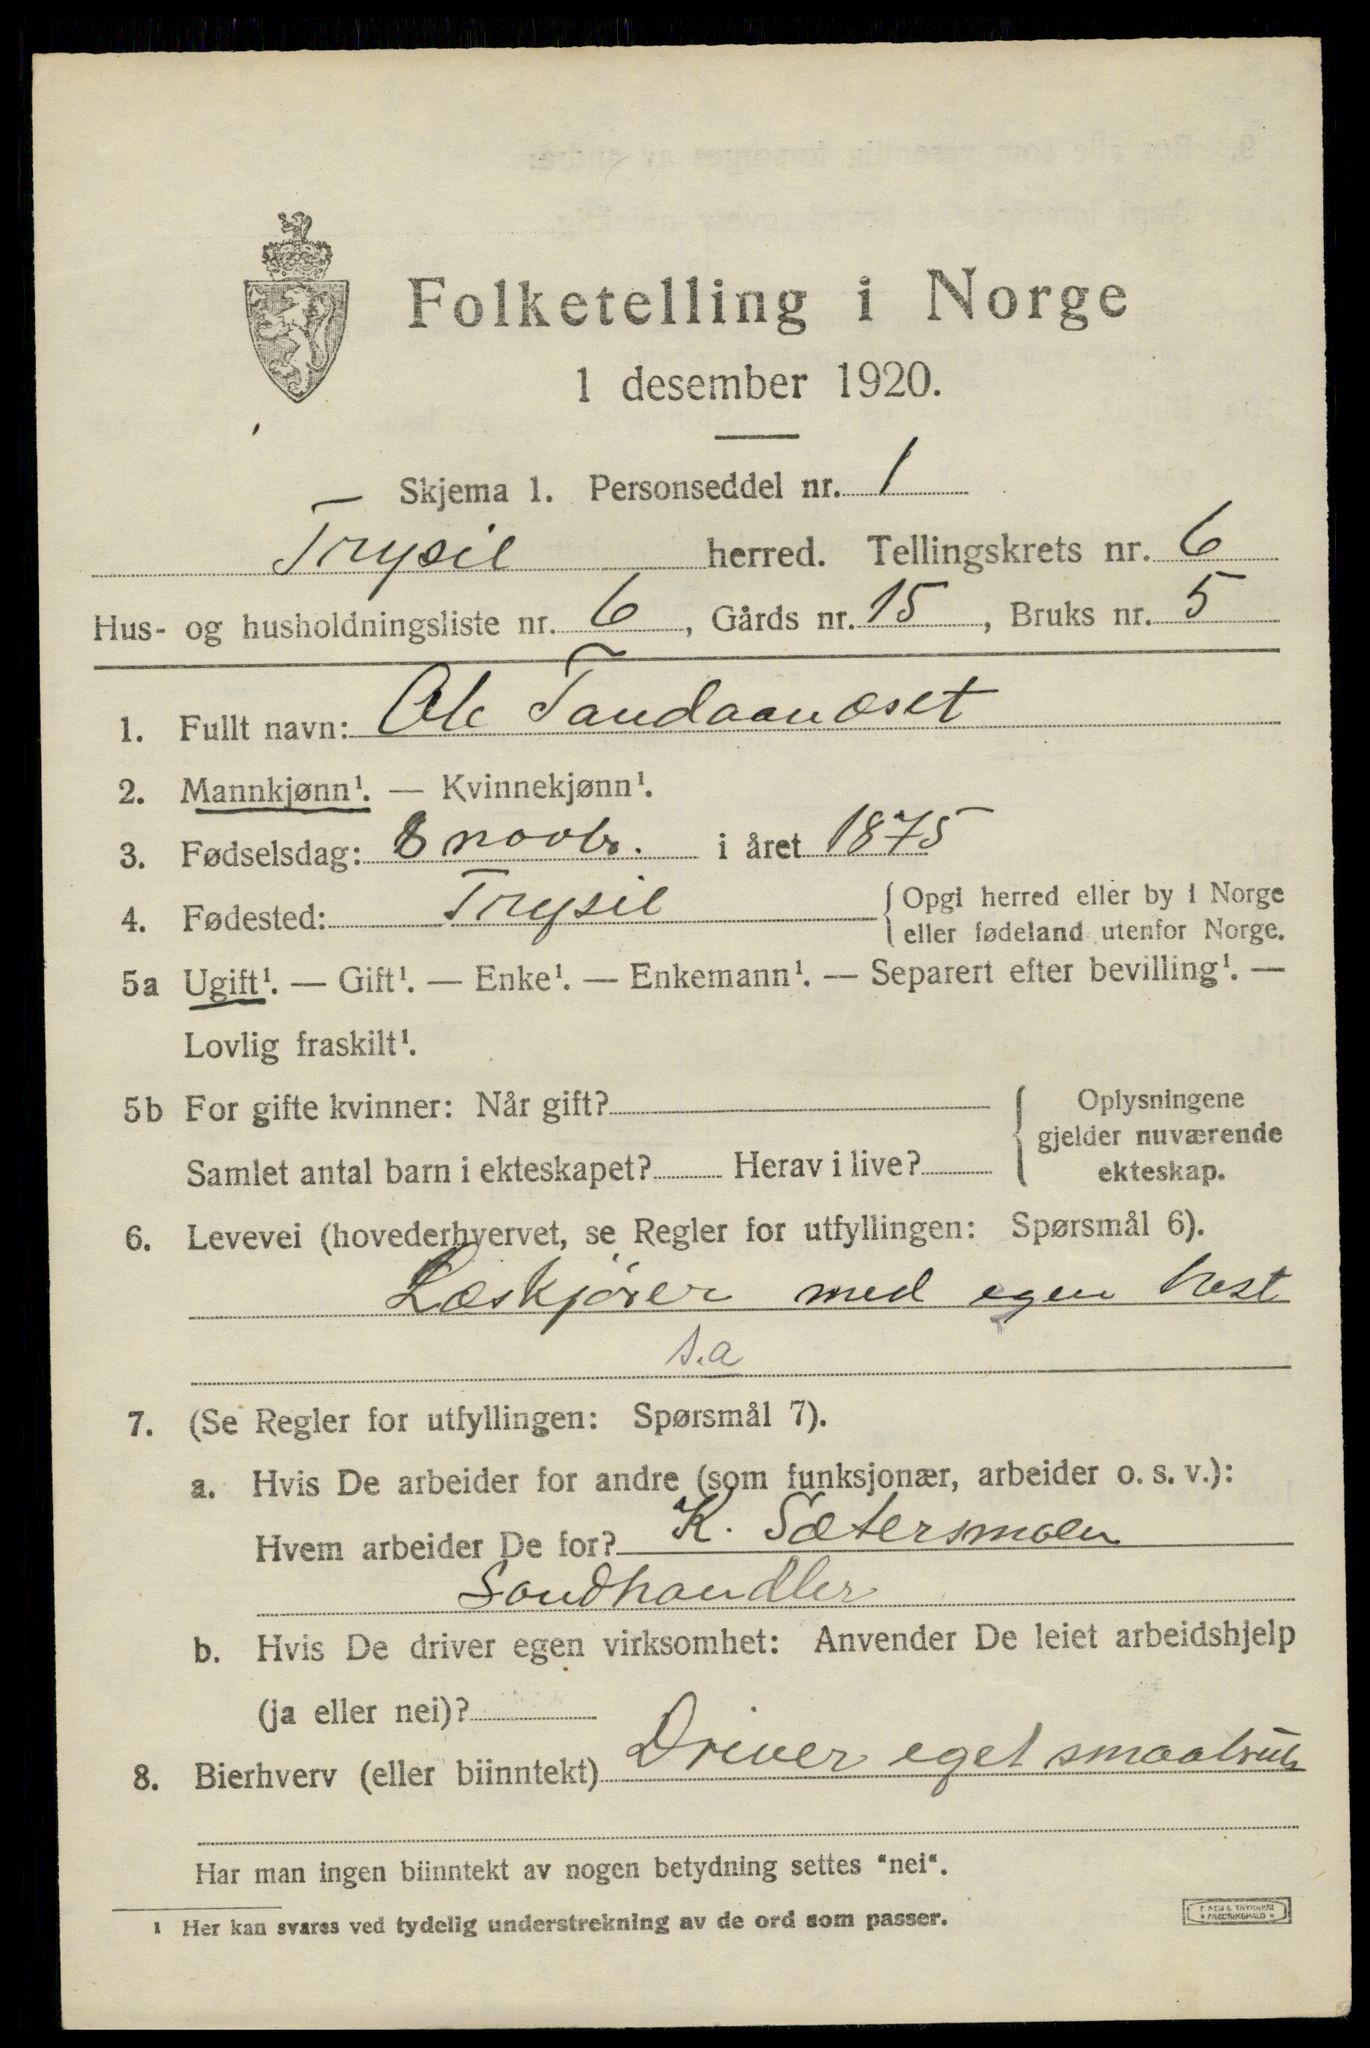 Folketelling i Norge
1 desember 1920.
Skjema 1. Personseddel nr. 1
Trysil herred. Tellingskrets nr. 6
Hus- og husholdningsliste nr. 6, Gårds nr. 15, Bruks nr. 5
1. Fullt navn: Ole Tandaanæset
2. Mannkjønn¹. — Kvinnekjønn¹.
3. Fødselsdag: 8 novbr. i året 1875
4. Fødested: Trysil { Opgi herred eller by i Norge
eller fødeland utenfor Norge.
5a Ugift¹. — Gift¹. — Enke¹. — Enkemann¹. — Separert efter bevilling¹. —
Lovlig fraskilt¹.
5b For gifte kvinner: Når gift?
Samlet antal barn i ekteskapet? Herav i live?
{ Oplysningene
gjelder nuværende
ekteskap.
6. Levevei (hovederhvervet, se Regler for utfyllingen: Spørsmål 6).
Læskjører med egen hest
s.a
7. (Se Regler for utfyllingen: Spørsmål 7).
a. Hvis De arbeider for andre (som funksjonær, arbeider o. s. v.):
Hvem arbeider De for? K. Sætersmoen
Landhandler
b. Hvis De driver egen virksomhet: Anvender De leiet arbeidshjelp
(ja eller nei)?
8. Bierhverv (eller biinntekt) Driver eget smaabruk
Har man ingen biinntekt av nogen betydning settes "nei".
¹ Her kan svares ved tydelig understrekning av de ord som passer.
FREDRIKSHALD